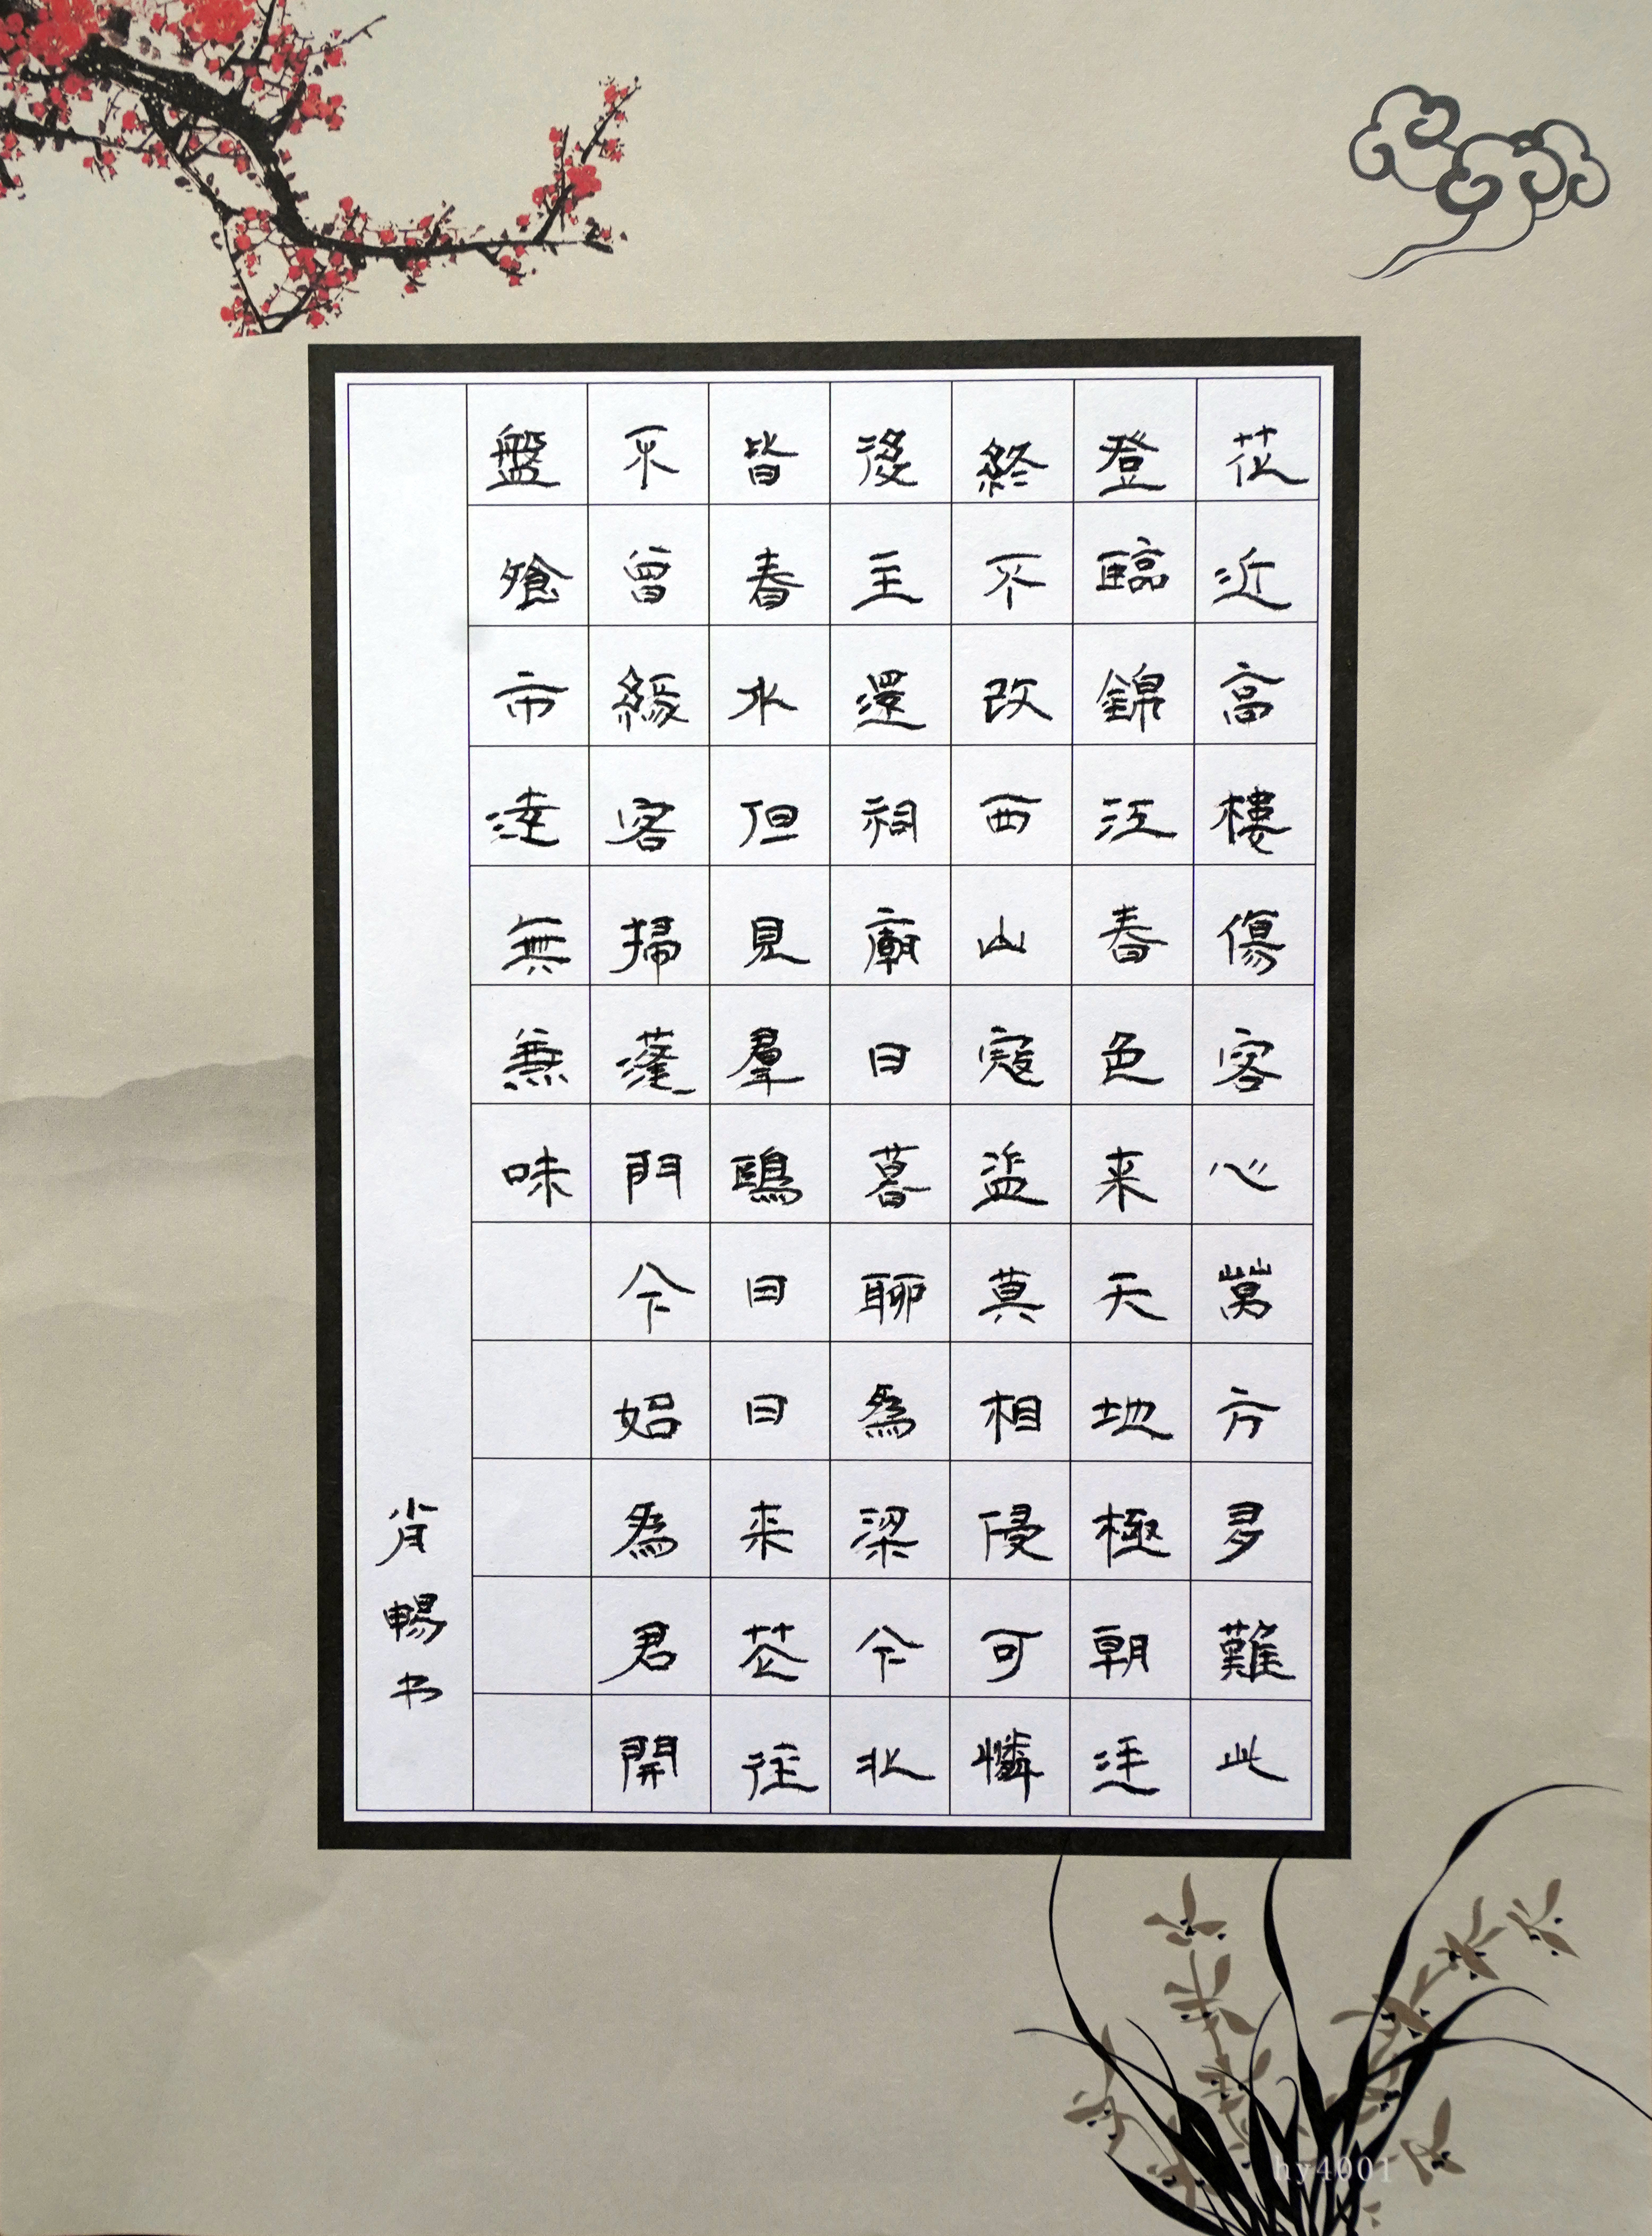 花近高樓傷客心萬方多難此
登臨錦江春色来天地極朝廷
終不改西山寇盜莫相侵可憐
後主還祠廟日暮聊為梁今北
皆春水但見羣鷗日日来花往
不曾緣客掃蓬門今始為君開
盤飧市遠無兼味
肖暢书
hy4001